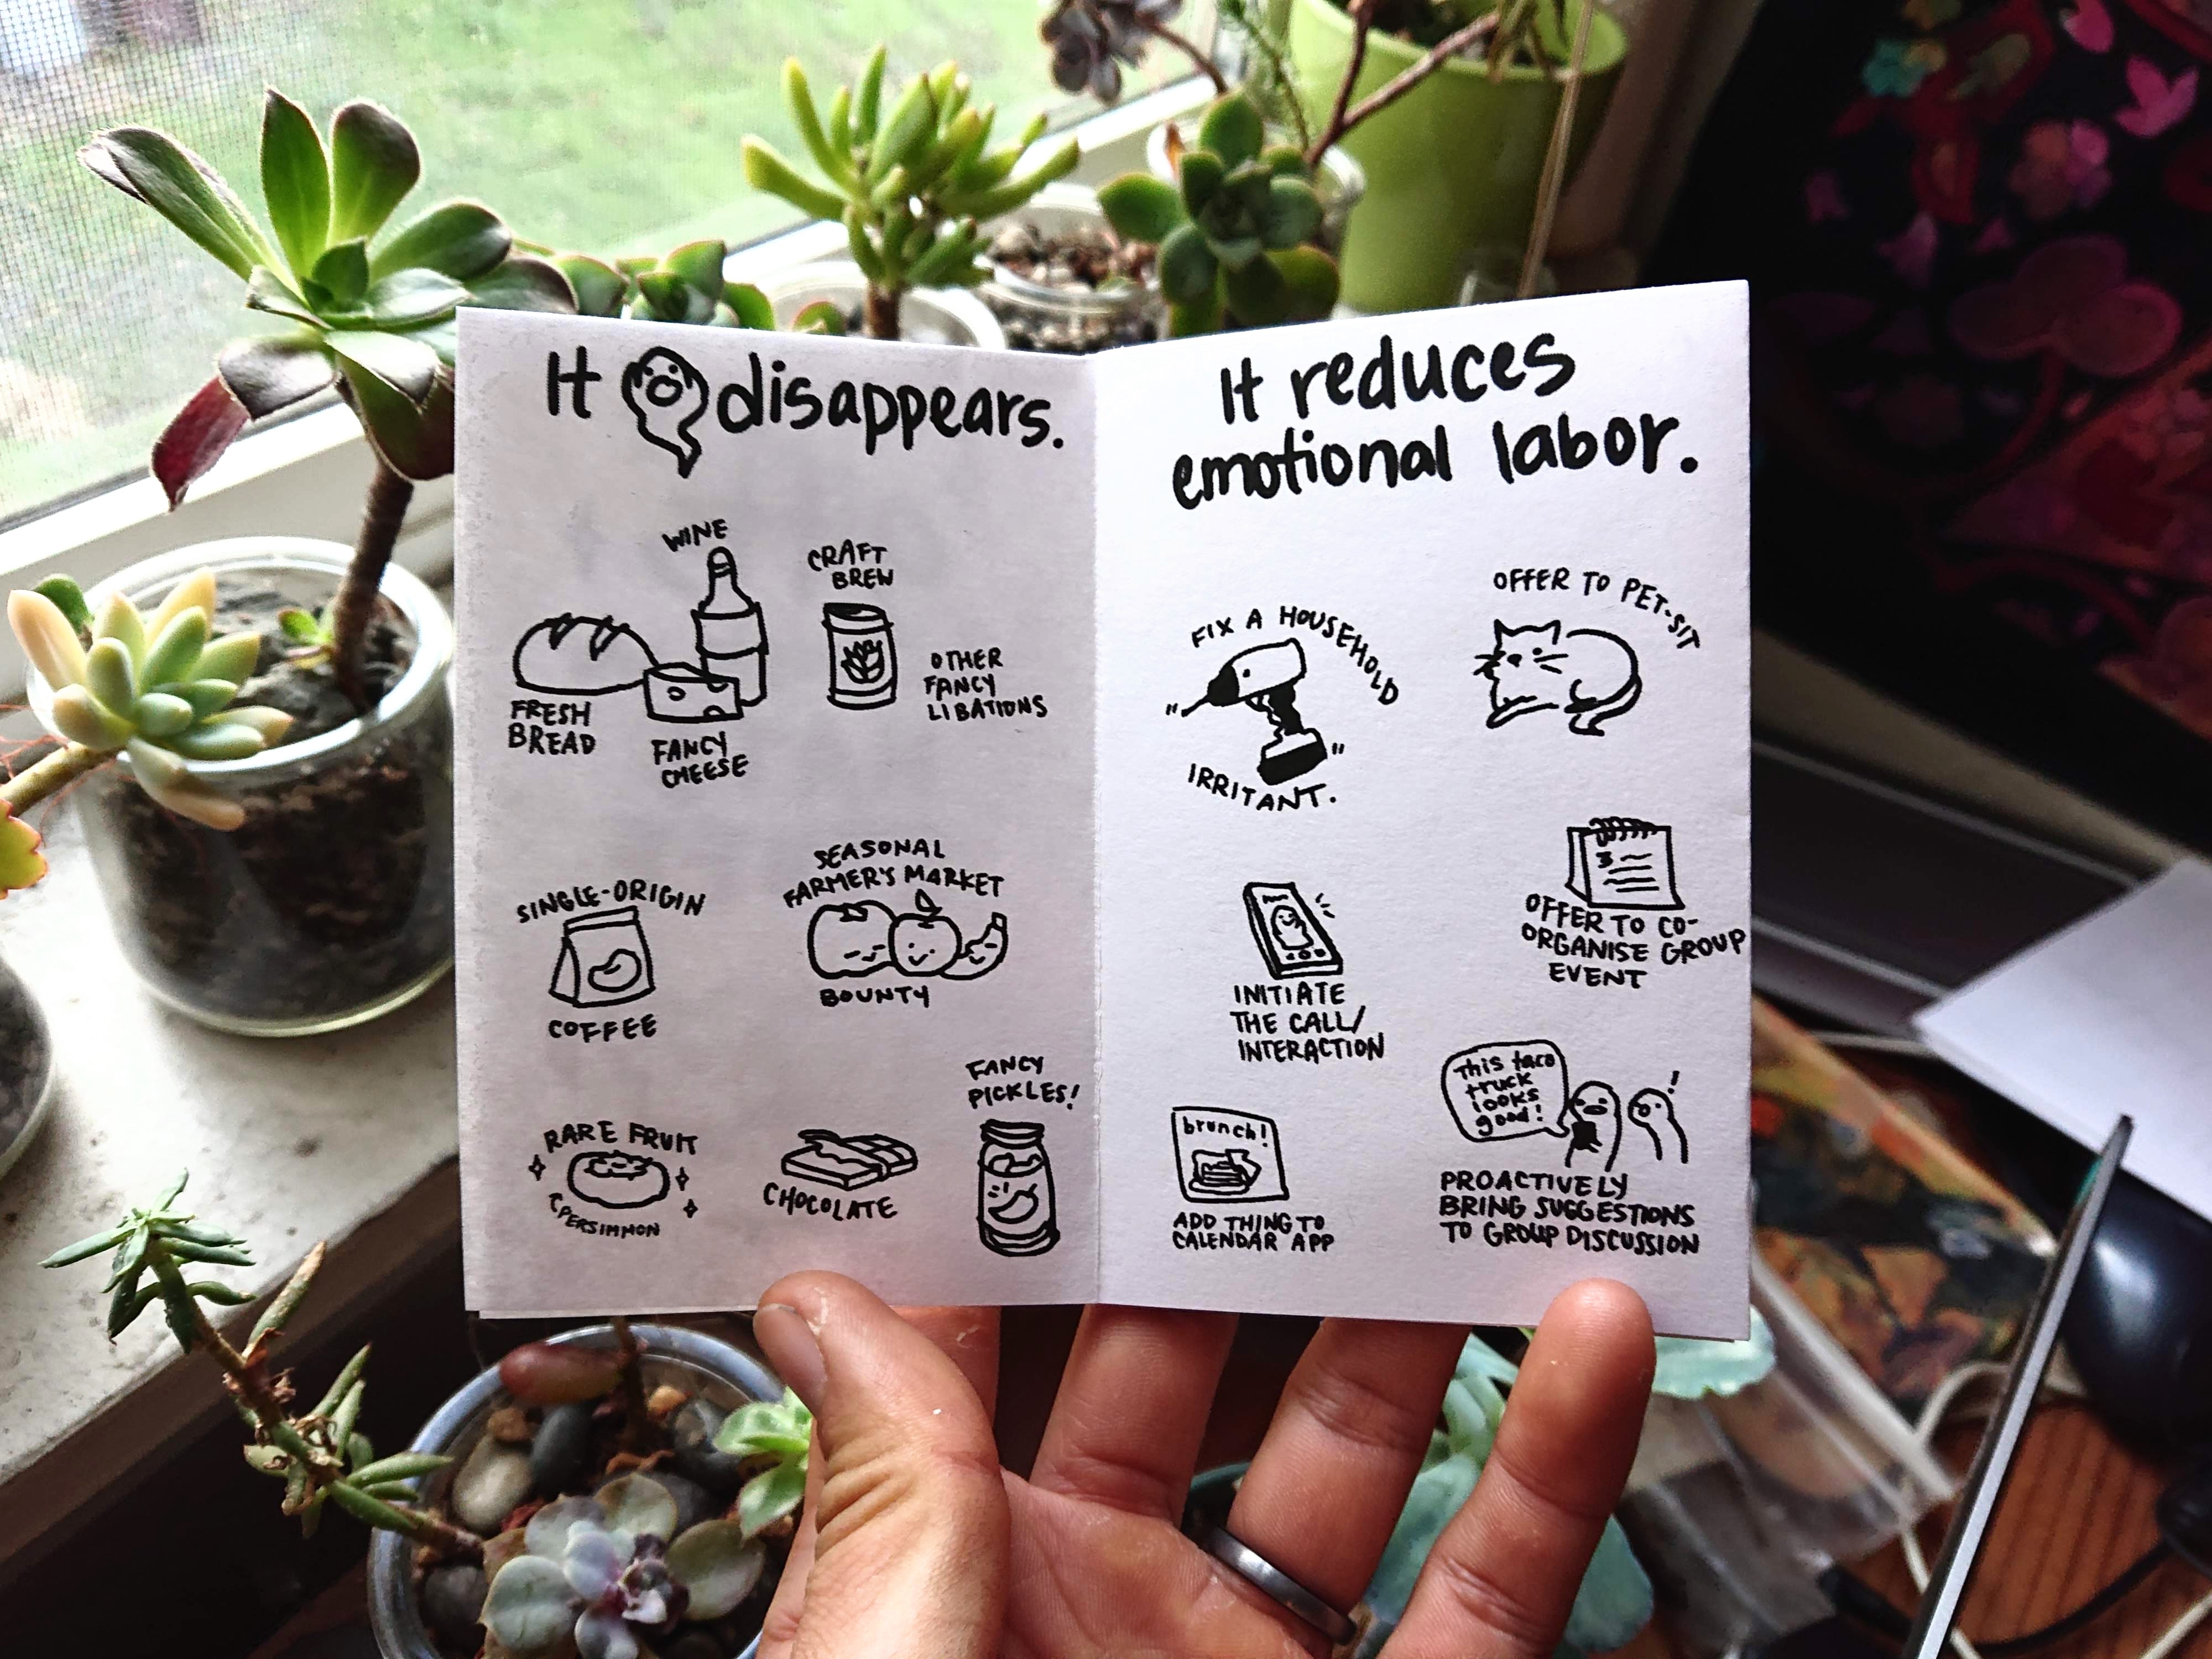 It disappears.
WINE
CRAFT
BREW
OTHER
FANCY
LIBATIONS
FRESH
BREAD
FANCY
CHEESE
SINGLE-ORIGIN
COFFEE
SEASONAL
FARMER'S MARKET
BOUNTY
RARE FRUIT
(PERSIMMON
CHOCOLATE
FANCY
PICKLES!
It reduces
emotional labor.
FIX A HOUSEHOLD
IRRITANT.
OFFER TO PET-SIT
INITIATE
THE CALL/
INTERACTION
3
OFFER TO CO-
ORGANISE GROUP
EVENT
brunch!
ADD THING TO
CALENDAR APP
This taco
truck
looks
good!
!
PROACTIVELY
BRING SUGGESTIONS
TO GROUP DISCUSSION